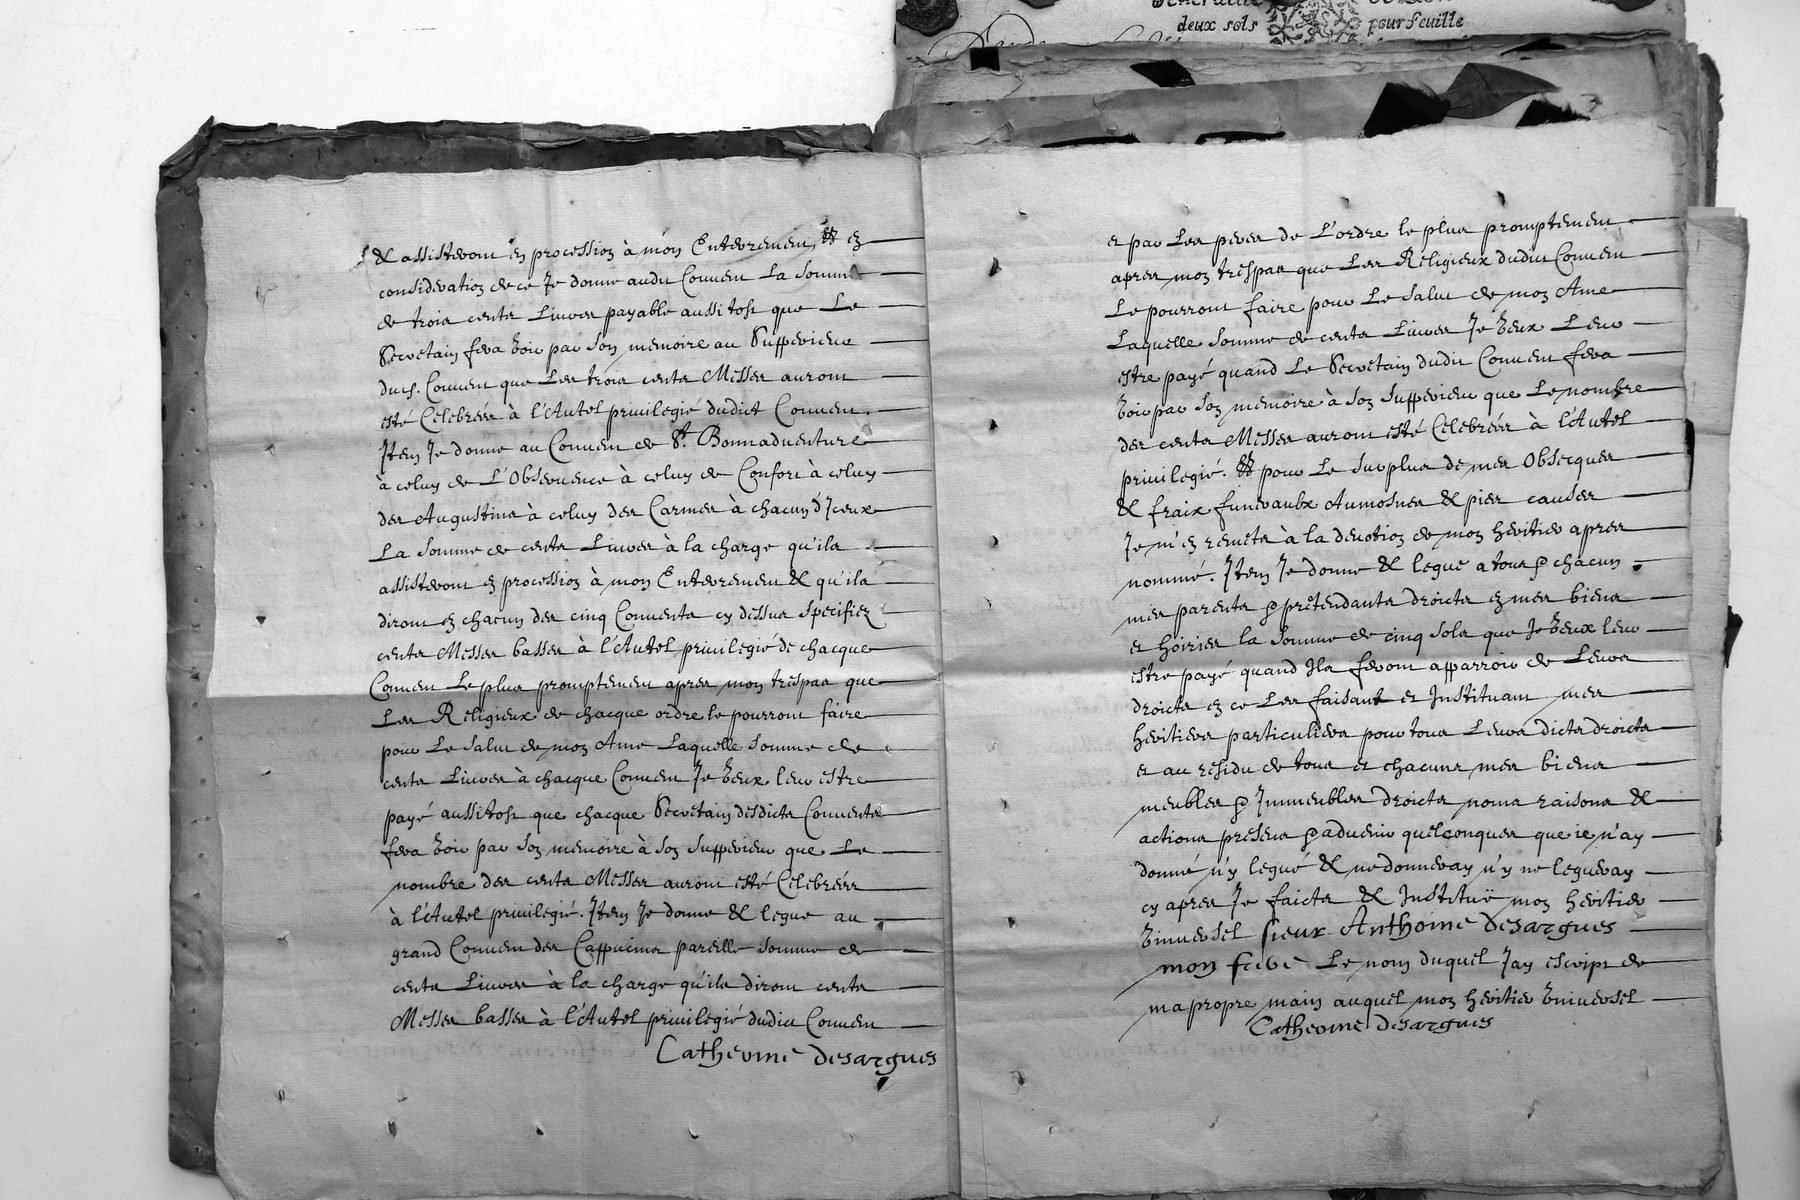 deux sols pour feuille
& assisteront en procession à mon Enterrement & en
consideration de ce Je donne audit Convent La Somme
de trois cents Livres payable aussi tost que Le
Secretain fera voir par Son memoire au Supperieur
dud. Convent que Les trois cents Messes auront
esté Celebrées à l'Autel privilegié dudict Convent.
Item Je donne au Convent de St. Bonnadventure
à celuy de L'Observence à celuy de Confort à celuy
des Augustins à celuy des Carmes à chacun d'Iceux
La Somme de cents Livres à la charge qu'ils
assisteront en procession à mon Enterrement & qu'ils
diront en chacun des cinq Convents cy dessus Specifiez
cents Messes basses à l'Autel privilegié de chacque
Convent Le plus promptement apres mon trespas que
Les Religieux de chacque ordre le pourront faire
pour Le Salut de mon Ame Laquelle Somme de
cents Livres à chacque Convent Je veux leur estre
payé aussi tost que chacque Secretain desdicts Convents
fera voir par Son memoire à Son Supperieur que Le
nombre des cents Messes auront esté Celebrées
à l'Autel privilegié. Item Je donne & legue au
grand Convent des Cappucins pareille Somme de
cents Livres à la charge qu'ils diront cents
Messes basses à l'Autel privilegié dudict Convent
Catherine desargues
et par Les peres de L'ordre le plus promptement
apres mon trespas que Les Religieux dudict Convent
Le pourront faire pour Le Salut de mon Ame
Laquelle Somme de cents Livres Je veux Leur
estre payé quand Le Secretain dudit Convent fera
voir par Son memoire à Son Supperieur que Le nombre
des cents Messes auront esté Celebrées à l'Autel
privilegié. & pour Le Surplus de mes Obseques
& fraix funeraulx Aumosnes & pies causes
Je m'en remets à la devotion de mon heritier apres
nommé. Item Je donne & legue a tous & chacun
mes parents & prétendants droicts en mes biens
et hoiries la Somme de cinq Sols que Je veux leur
estre payé quand Ils feront apparroir de Leurs
droicts en ce Les faisant et Instituant mes
heritiers particuliers pour tous Leurs dicts droicts
et au residu de tous et chacuns mes biens
meubles & Immeubles droicts noms raisons &
actions presens & advenir quelconques que ie n'ay
donné n'y legué & ne donneray n'y ne legueray
cy apres Je faicts & Instituë mon heritier
vniversel sieur Anthoine desargues
mon frere Le nom duquel Jay escript de
ma propre main auquel mon heritier vniversel
Catherine desargues